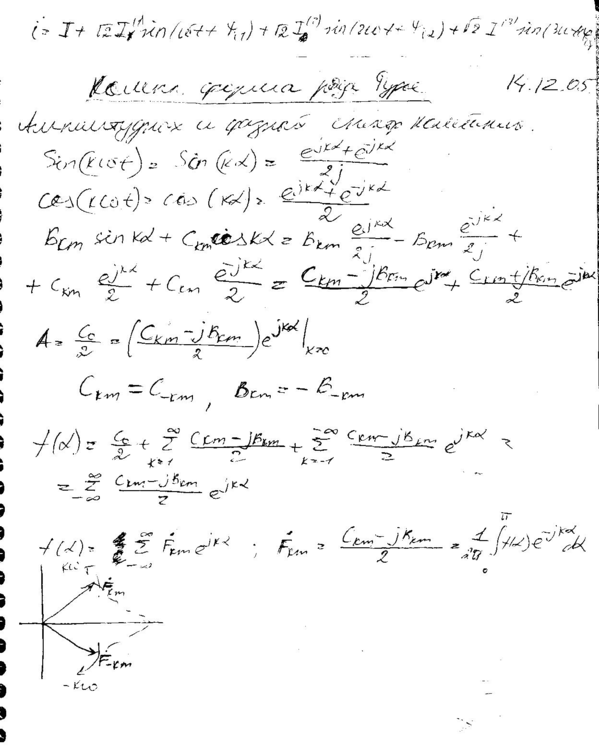 i = I + √2 I⁽¹⁾ sin(ωt + ψi1) + √2 I⁽²⁾ sin(2ωt + ψi2) + √2 I⁽³⁾ sin(3ωt +
Компл. форма ряда Фурье 14.12.05
и фазный спектр
Sin(kωt) = Sin(kα) = (e^{jkα} + e^{-jkα})/2j
cos(kωt) = cos(kα) = (e^{jkα} + e^{-jkα})/2
Bkm sin kα + Ckm cos kα = Bkm e^{jkα}/2j − Bkm e^{-jkα}/2j +
+ Ckm e^{jkα}/2 + Ckm e^{-jkα}/2 = (Ckm − jBkm)/2 e^{jkα} + (Ckm + jBkm)/2 e^{-jkα}
A = C0/2 = ((Ckm − jBkm)/2) e^{jkα} |k=0
Ckm = C-km , Bkm = − B-km
f(α) = C0/2 + Σ_{k=1}^{∞} (Ckm − jBkm)/2 + Σ_{k=-1}^{-∞} (Ckm − jBkm)/2 e^{jkα} =
= Σ_{-∞}^{∞} (Ckm − jBkm)/2 e^{jkα}
f(α) = Σ_{-∞}^{∞} Ḟkm e^{jkα} ; Ḟkm = (Ckm − jBkm)/2 = 1/2π ∫_0^π f(α) e^{-jkα} dα
kω
Ḟkm
Ḟ-km
-kω